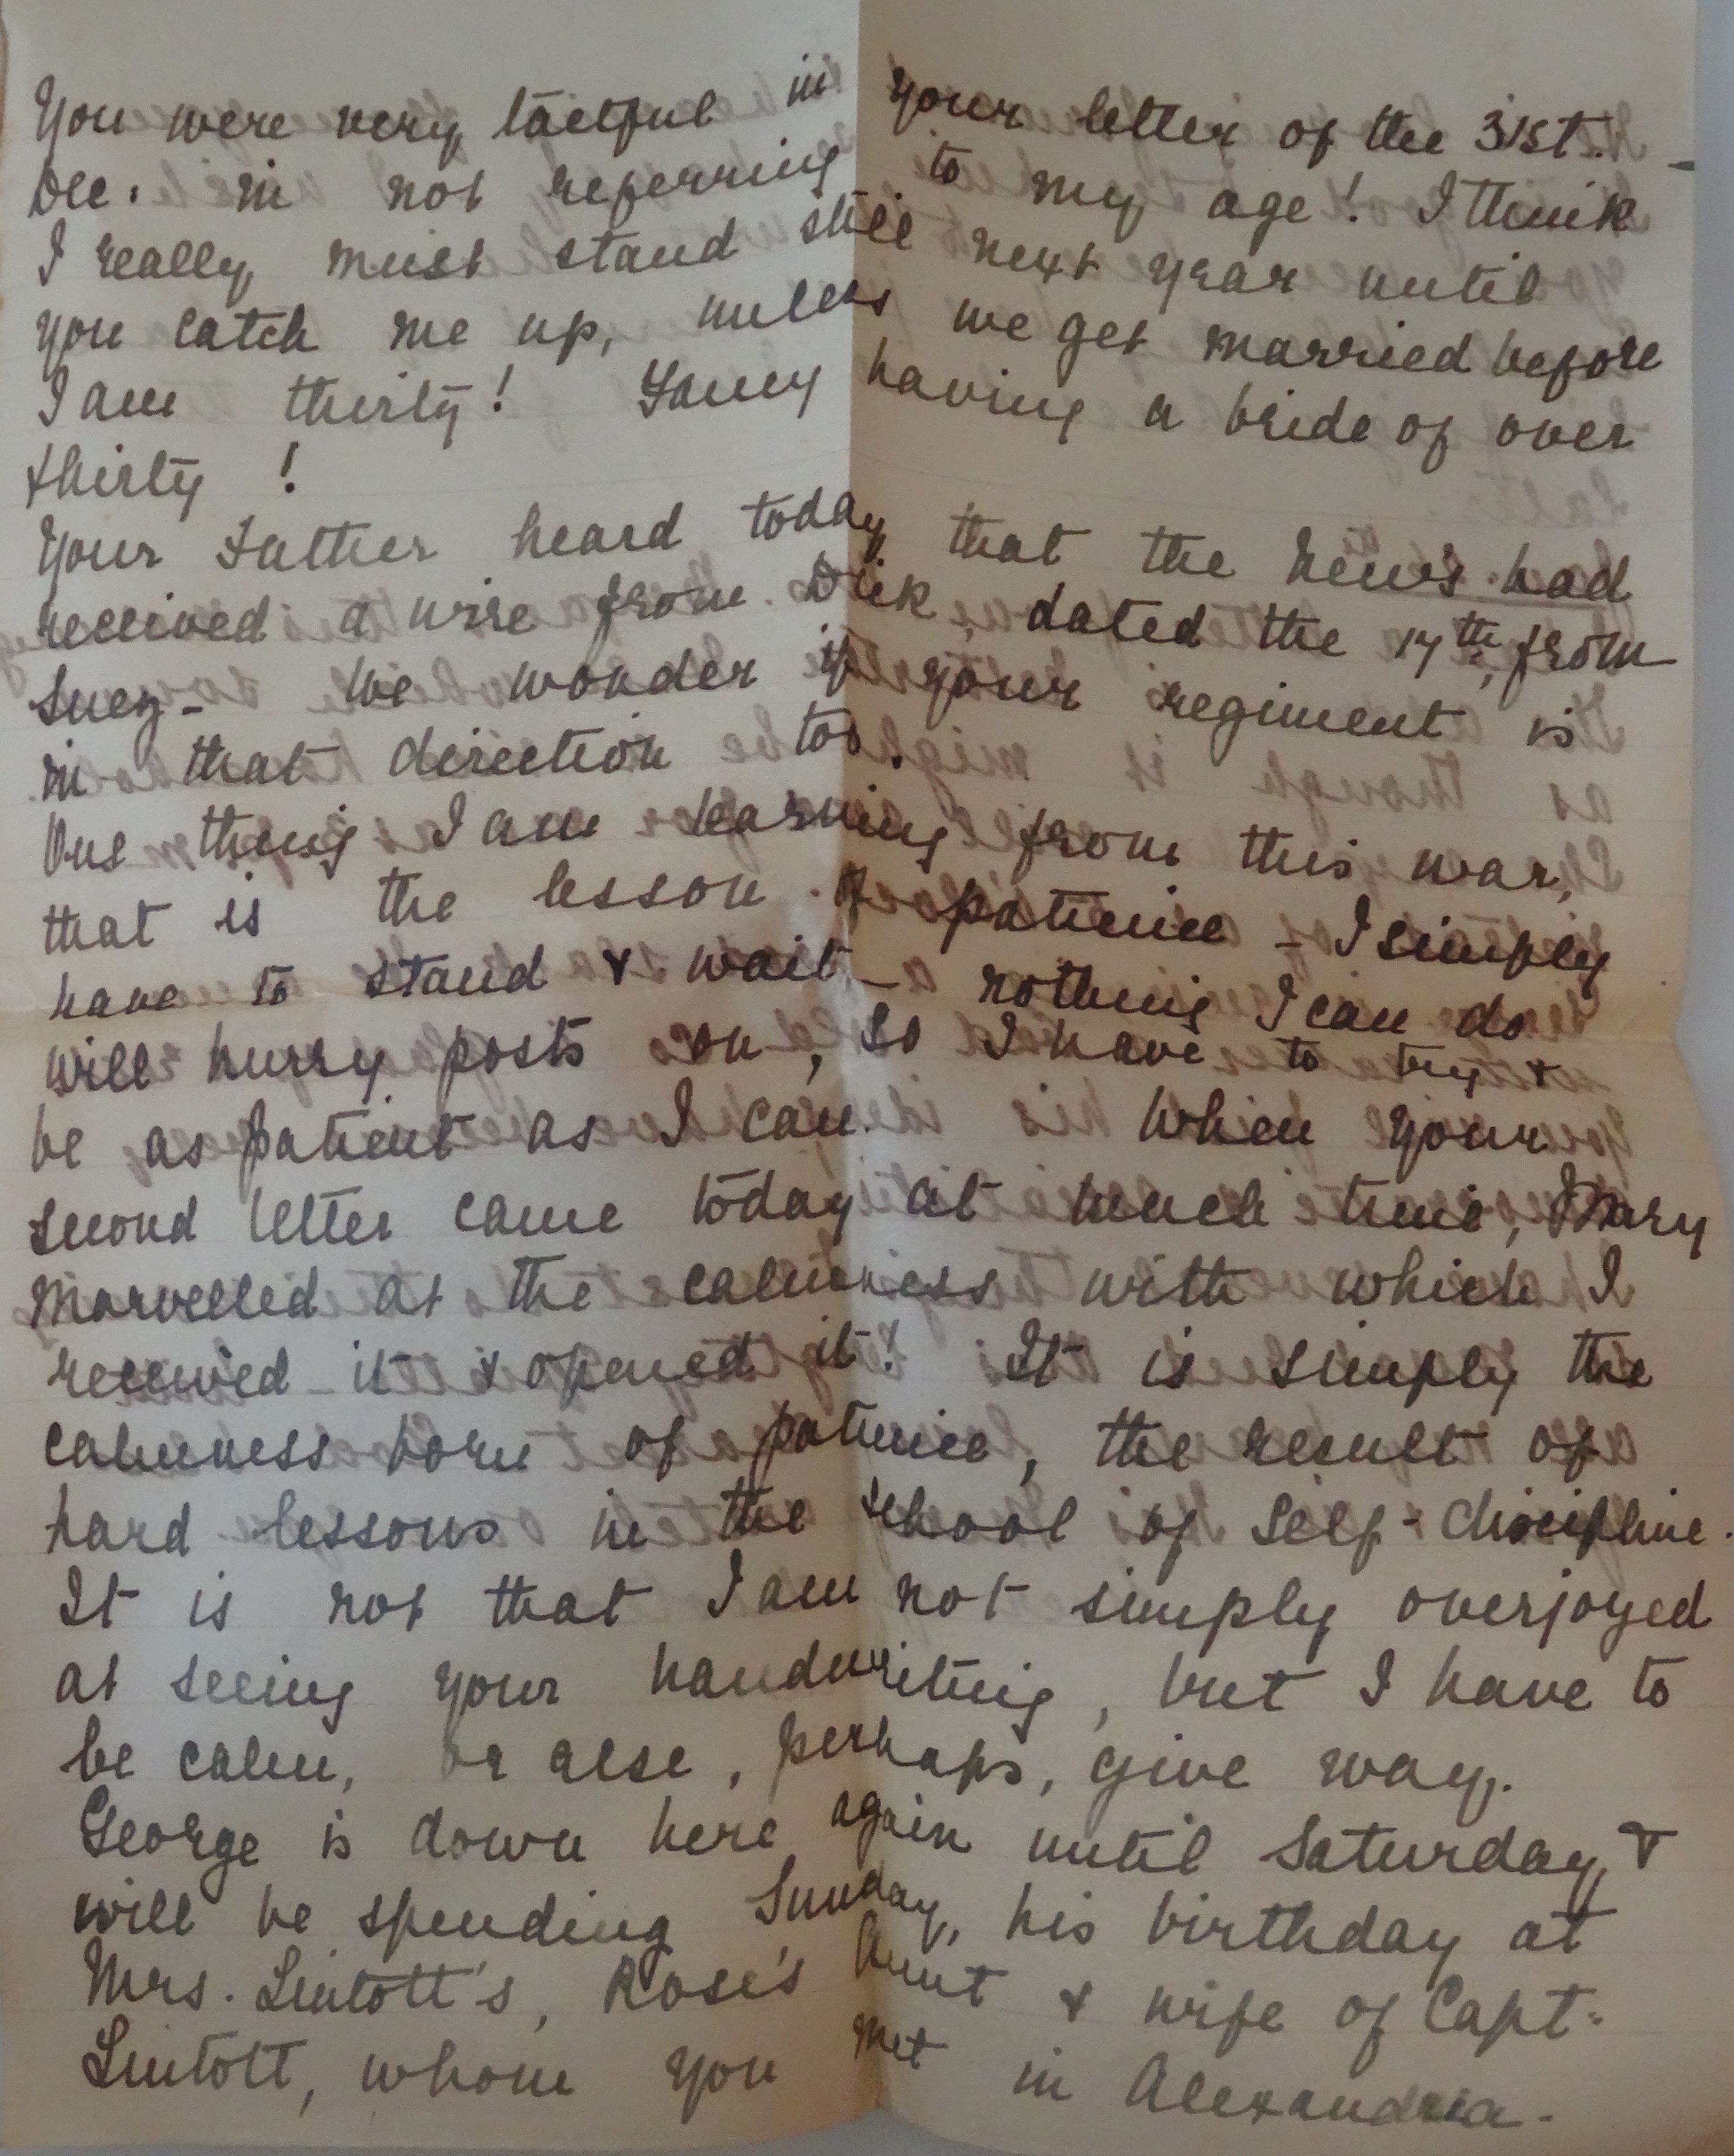 You were very tactful in your letter of the 31st.
Dec. in not referring to my age! I think
I really must stand still next year until
you catch me up, unless we get married before
I am thirty! Fancy having a bride of over
thirty!
Your Father heard today that the News had
received a wire from Dick, dated the 17th, from
Suez - We wonder if your regiment is
in that direction too.
One thing I am learning from this war,
that is the lesson of patience - I simply
have to stand & wait - nothing I can do
will hurry posts on, so I have to try &
be as patient as I can. When your
second letter came today at lunch time, Mary
marvelled at the calmness with which I
received it & opened it! It is simply the
calmness born of patience, the result of
hard lessons in the school of self-discipline.
It is not that I am not simply overjoyed
at seeing your handwriting, but I have to
be calm, or else, perhaps, give way.
George is down here again until Saturday, &
will be spending Sunday, his birthday at
Mrs. Lintott's, Rose's Aunt & wife of Capt:
Lintott, whom you met in Alexandria.